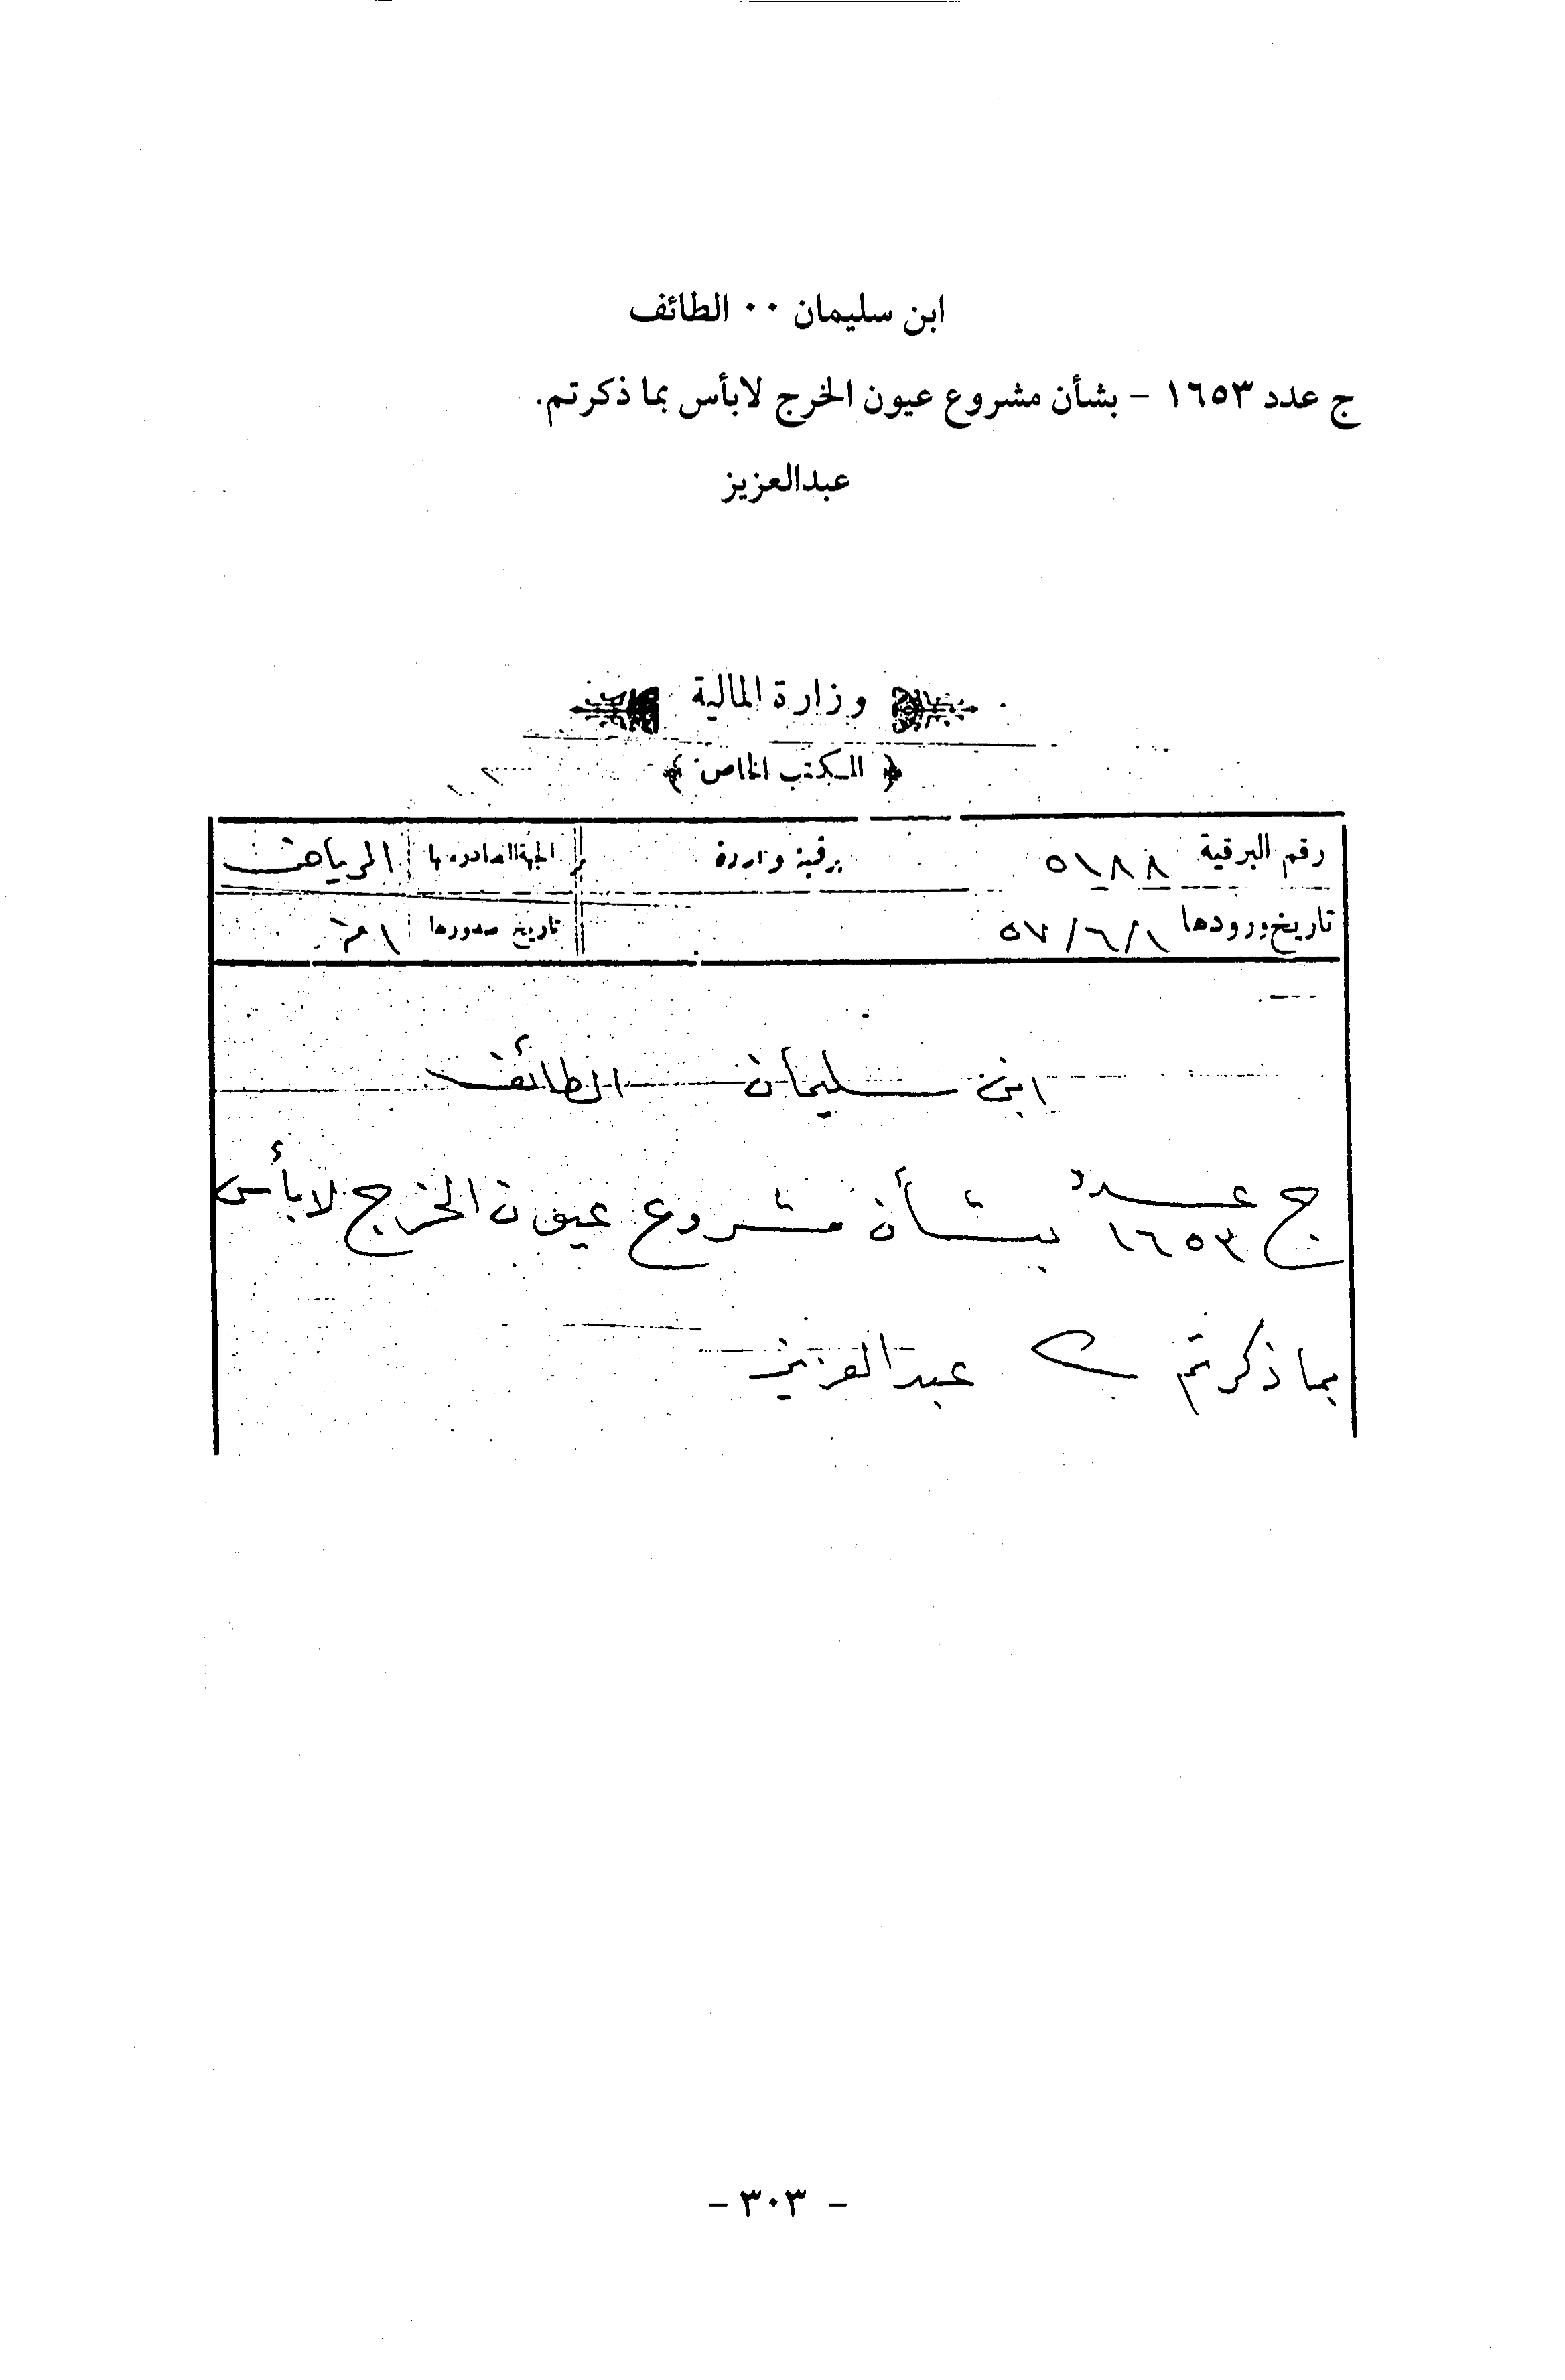 ابن سليمان ٠٠ الطائف
ج عدد ١٦٥٣ - بشأن مشروع عيون الخرج لابأس بما ذكرتم.
عبدالعزيز
وزارة المالية
﴿ المكتب الخاص ﴾
رقم البرقية ٥١٨٨ برقية واردة الجهة الصادره منها الرياض
تاريخ ورودها ٥٧/٦/١ تاريخ صدورها
ابن سليمان الطائف
ج عدد ١٦٥٣ بشأن مشروع عيون الخرج لا بأس
بما ذكرتم عبد العزيز
- ٣٠٣ -